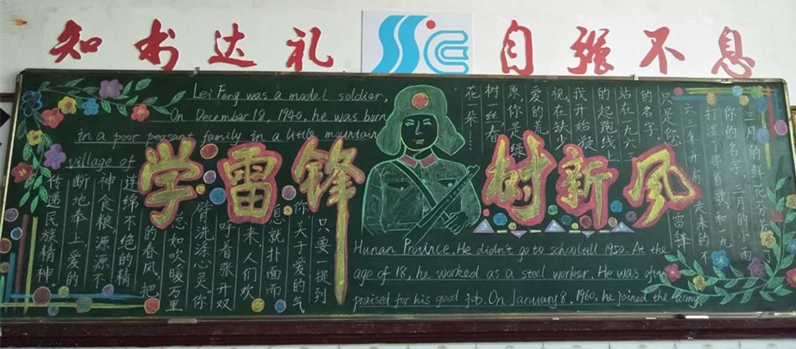 知书达礼
自强不息
Lei Feng was a model soldier,
On December 18, 1940, he was born
in a poor peasant family in a little mountain
village of
学雷锋
树新风
Hunan Province. He didn't go to school till 1950. At the
age of 18, he worked as a steel worker. He was
praised for his good job. On January 8, 1960, he joined the army.
三月的鲜花芬芳了
你的名字,三月的
打湿了
只是您
的名字
站在一九六二
的起跑线上
我开始凝
视在缺少
爱的荒
原,你是绿
树一丝春
花一朵……
只要一提到
你关于爱的气
息就扑面而
来,人们欢
呼着张开双
臂洗涤心灵你
总如吹暖万里
的春风,把
连绵不绝的精
神食粮源源不
断地奉上,爱的
传递民族精神